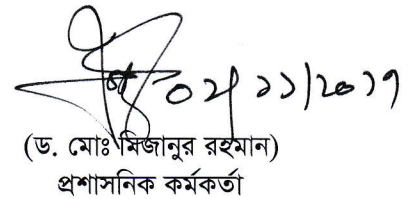 ০২/১১/২০১৭
(ড. মোঃ মিজানুর রহমান)
প্রশাসনিক কর্মকর্তা